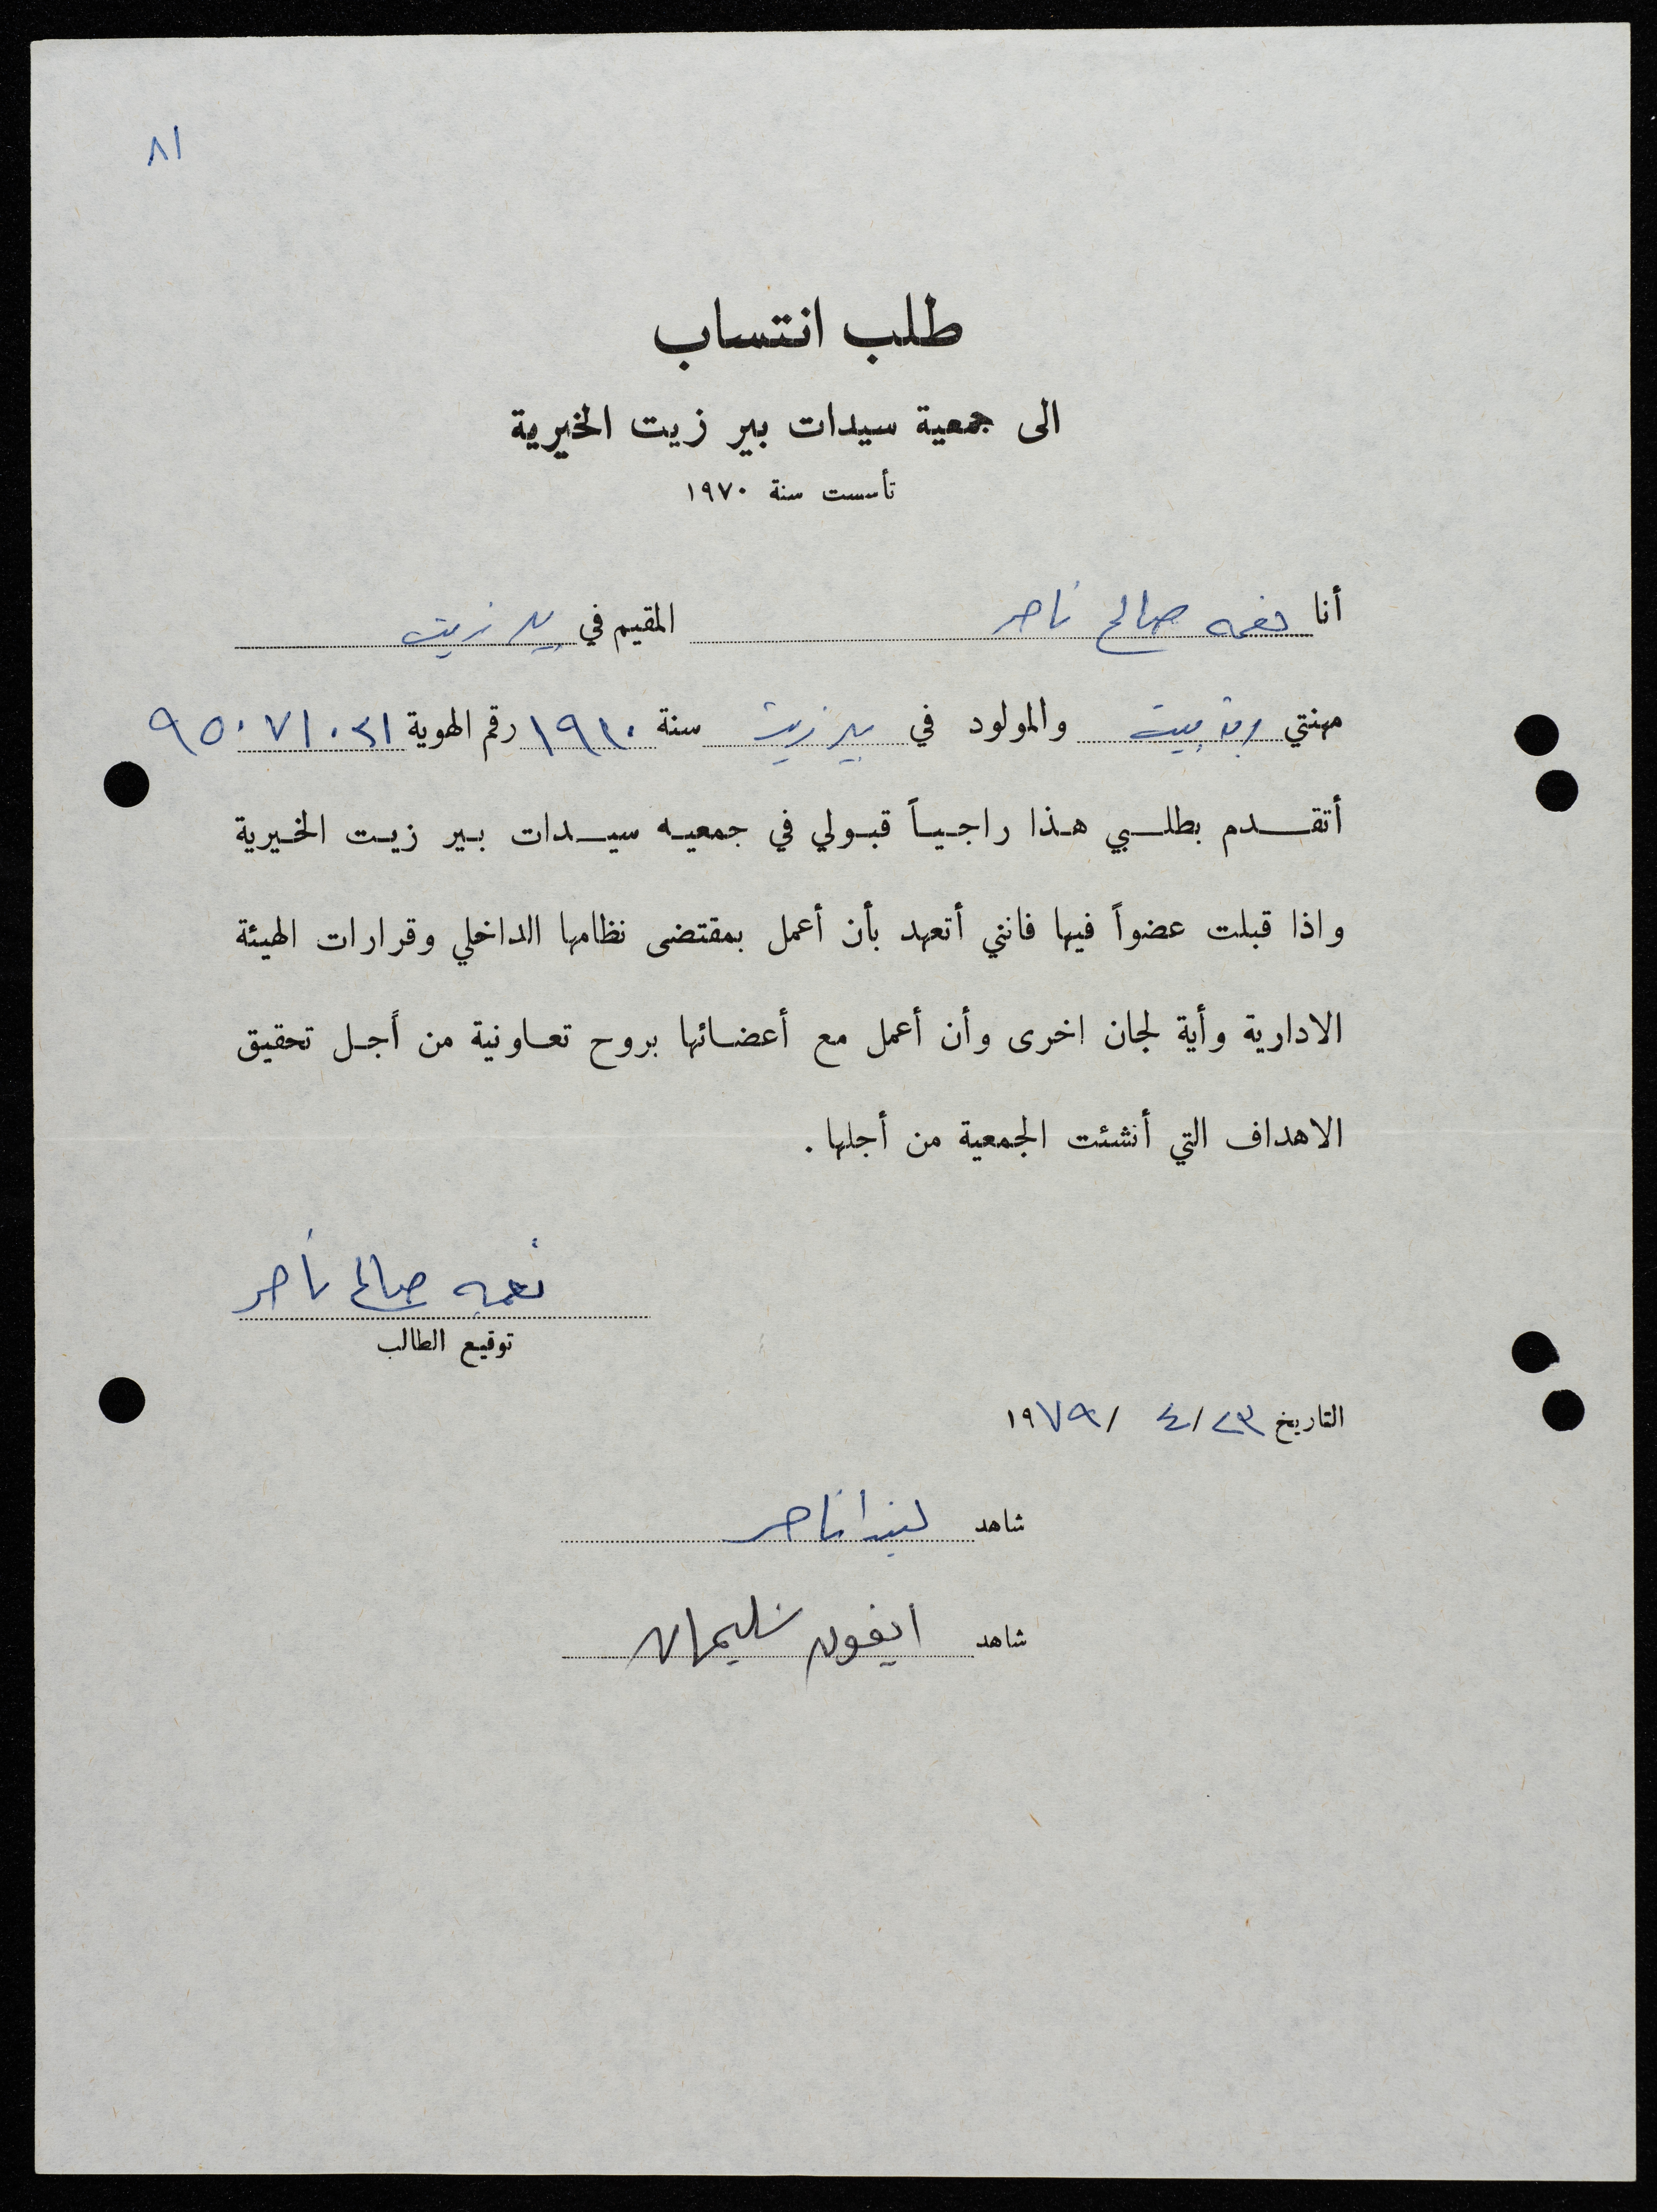 ٨١
طلب انتساب
الى جمعية سيدات بير زيت الخيرية
تأسست سنة ١٩٧٠
أنا نعمه صالح ناصر المقيم في بير زيت
مهنتي ربة بيت والمولود في بير زيت سنة ١٩٢٠ رقم الهوية ٩٥٠٧١٠٢١
أتقدم بطلبي هذا راجياً قبولي في جمعيه سيدات بير زيت الخيرية
واذا قبلت عضواً فيها فانني أتعهد بأن أعمل بمقتضى نظامها الداخلي وقرارات الهيئة
الادارية وأية لجان اخرى وأن أعمل مع أعضائها بروح تعاونية من أجل تحقيق
الاهداف التي أنشئت الجمعية من أجلها .
نعمه صالح ناصر
توقيع الطالب
التاريخ ٢٣/ ٤/ ١٩٧٩
شاهد ليندا ناصر
شاهد ايفون سليمان